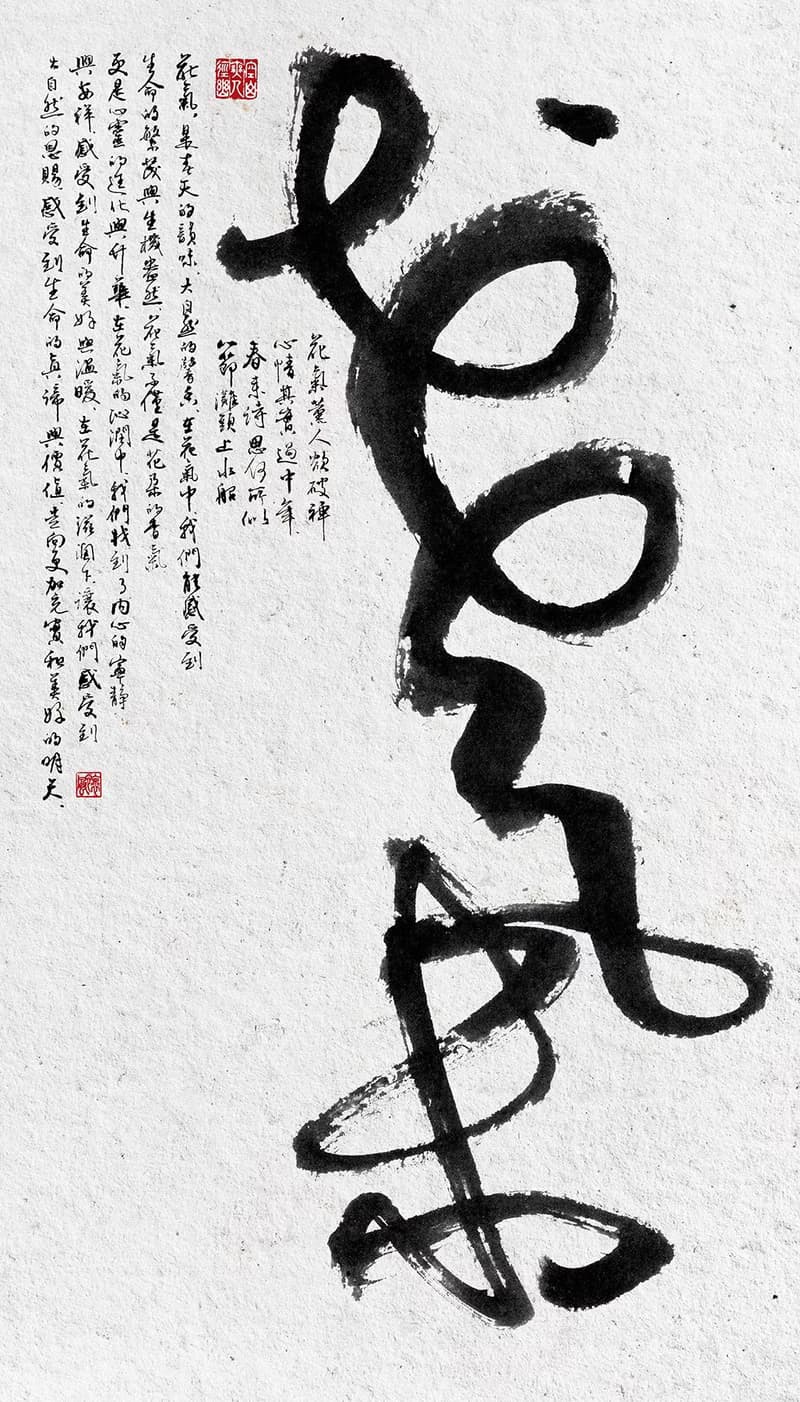 花氣
花氣薰人欲破禪
心情其實過中年
春來詩思何所似
八節灘頭上水船
花氣，是春天的韻味、大自然的馨香、在花氣中、我們能感受到
生命的繁茂與生機盎然、花氣不僅是花朵的香氣
更是心靈的進化與升華、在花氣的沁潤中、我們找到了內心的寧靜
與安祥感受到生命的美好與溫暖、在花氣的滋潤下、讓我們感受到
大自然的恩賜、感受到生命的真諦與價值走向更加充實和美好的明天、